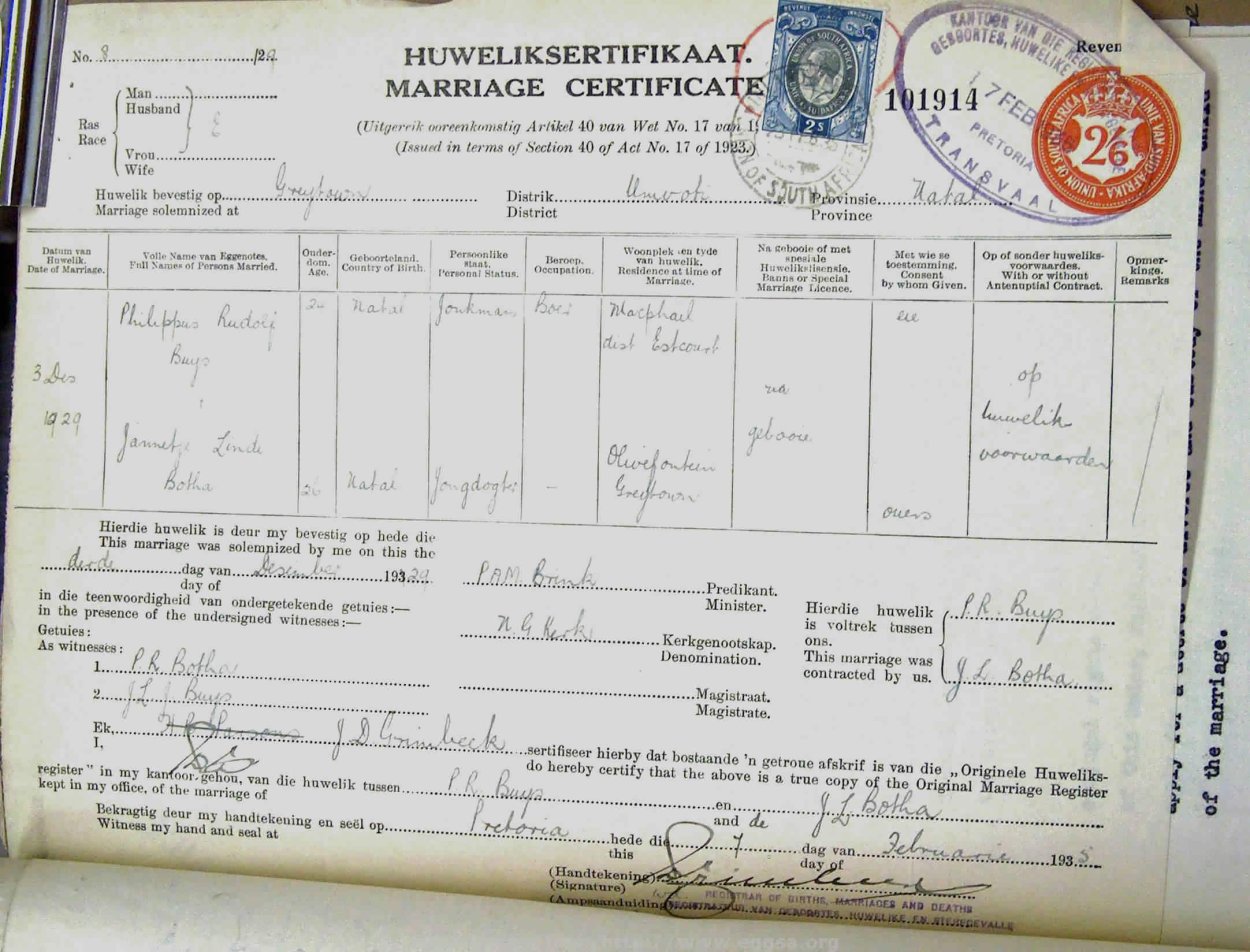 No. 8 /29
HUWELIKSERTIFIKAAT.
MARRIAGE CERTIFICATE
Reven
101914
REVENUE INKOMSTE
UNION OF SOUTH AFRICA
2s
KANTOOR VAN DIE
GEBOORTES, HUWELIKE
7 FEB
PRETORIA
TRANSVAAL
UNION OF SOUTH AFRICA · UNIE VAN SUID-AFRIKA
2/6
Ras
Race
Man
Husband
E
Vrou
Wife
(Uitgereik ooreenkomstig Artikel 40 van Wet No. 17 van 1
(Issued in terms of Section 40 of Act No. 17 of 1923.)
Huwelik bevestig op Greytown Distrik Umvoti Provinsie Natal
Marriage solemnized at District Province
Datum van Huwelik. Date of Marriage.
Volle Name van Eggenotes. Full Names of Persons Married.
Ouderdom. Age.
Geborteland. Country of Birth.
Persoonlike staat. Personal Status.
Beroep. Occupation.
Woonplek ten tyde van huwelik. Residence at time of Marriage.
Na gebooie of met spesiale Huwelikslisensie. Banns or Special Marriage Licence.
Met wie se toestemming. Consent by whom Given.
Op of sonder huweliks-voorwaardes. With or without Antenuptial Contract.
Opmer-kinge. Remarks
3 Des 1929
Philippus Rudolf Buys 24 Natal Jonkman Boer Macphail dist Estcourt eie
na gebooie
op huwelik voorwaarden
Jannetje Linde Botha 26 Natal Jongdogter – Olivefontein Greytown ouers
Hierdie huwelik is deur my bevestig op hede die
This marriage was solemnized by me on this the
derde dag van Desember 193 29
day of
in die teenwoordigheid van ondergetekende getuies:—
in the presence of the undersigned witnesses:—
Getuies:
As witnesses:
1. P.R. Botha
2. J L J Buys
P.A.M. Brink Predikant.
Minister.
N. G Kerk Kerkgenootskap.
Denomination.
Magistraat.
Magistrate.
Hierdie huwelik is voltrek tussen ons.
This marriage was contracted by us.
P.R. Buys
J.L. Botha
Ek, J D Grimbeck sertifiseer hierby dat bostaande 'n getroue afskrif is van die „Originele Huweliks-
I, do hereby certify that the above is a true copy of the Original Marriage Register
register" in my kantoor gehou, van die huwelik tussen P.R. Buys en J L Botha
kept in my office, of the marriage of and de
Bekragtig deur my handtekening en seël op Pretoria hede die 7 dag van Februarie 1935
Witness my hand and seal at this day of
(Handtekening)
(Signature)
(Ampsaanduiding)
REGISTRAR OF BIRTHS, MARRIAGES AND DEATHS
REGISTRATEUR VAN GEBOORTES, HUWELIKE EN STERFGEVALLE
of the marriage.
http://www.eggsa.org